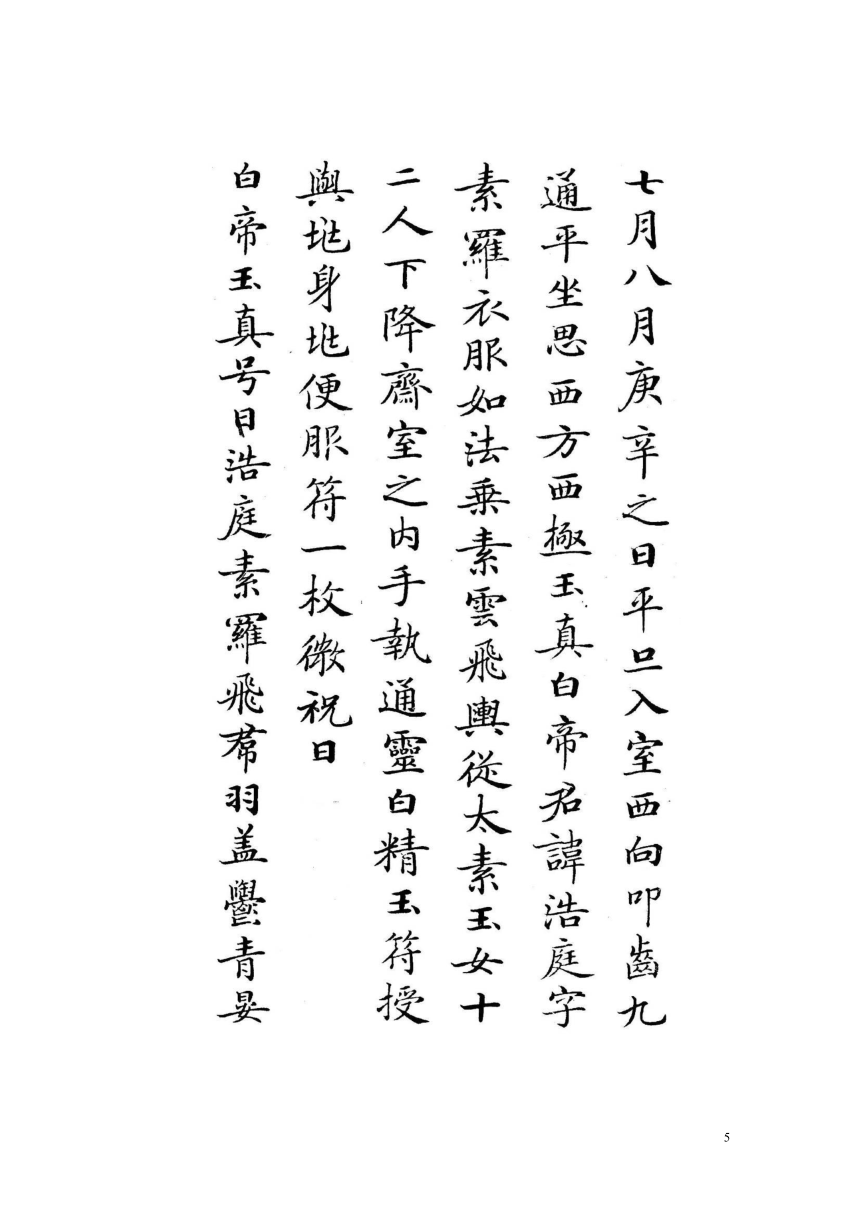 七月八月庚辛之日平旦入室西向叩齒九
通平坐思西方西極玉真白帝君諱浩庭字
素羅衣服如法乗素雲飛輿從太素玉女十
二人下降齋室之内手執通靈白精玉符授
與地身地便服符一枚微祝曰
白帝玉真号曰浩庭素羅飛帬羽盖鬱青晏
5